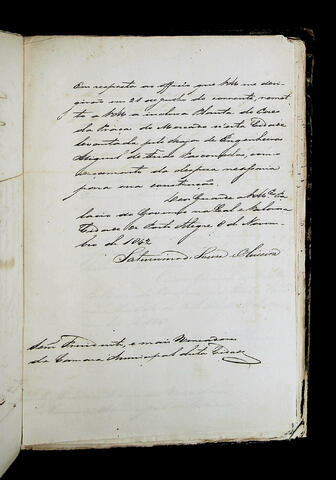 Em resposta ao officio que VMces me deri-
girão em 21 de Julho do corrente, remet-
to a VMces a incluza Planta do Caes
da Praça do Mercado nesta Cidade
levantada pelo Major de Engenheiros
com
orçamento da despeza necessaria
para sua construcção.
Deos Guarde a VMces Pa-
lacio do Governo na Leal e Valoroza
Cidade de Porto Alegre 8 de Novem-
bro de 1842
Saturnino de Souza e Oliveira
Senr. Prezidente, e mais Vereadores
da Camara Municipal desta Cidade